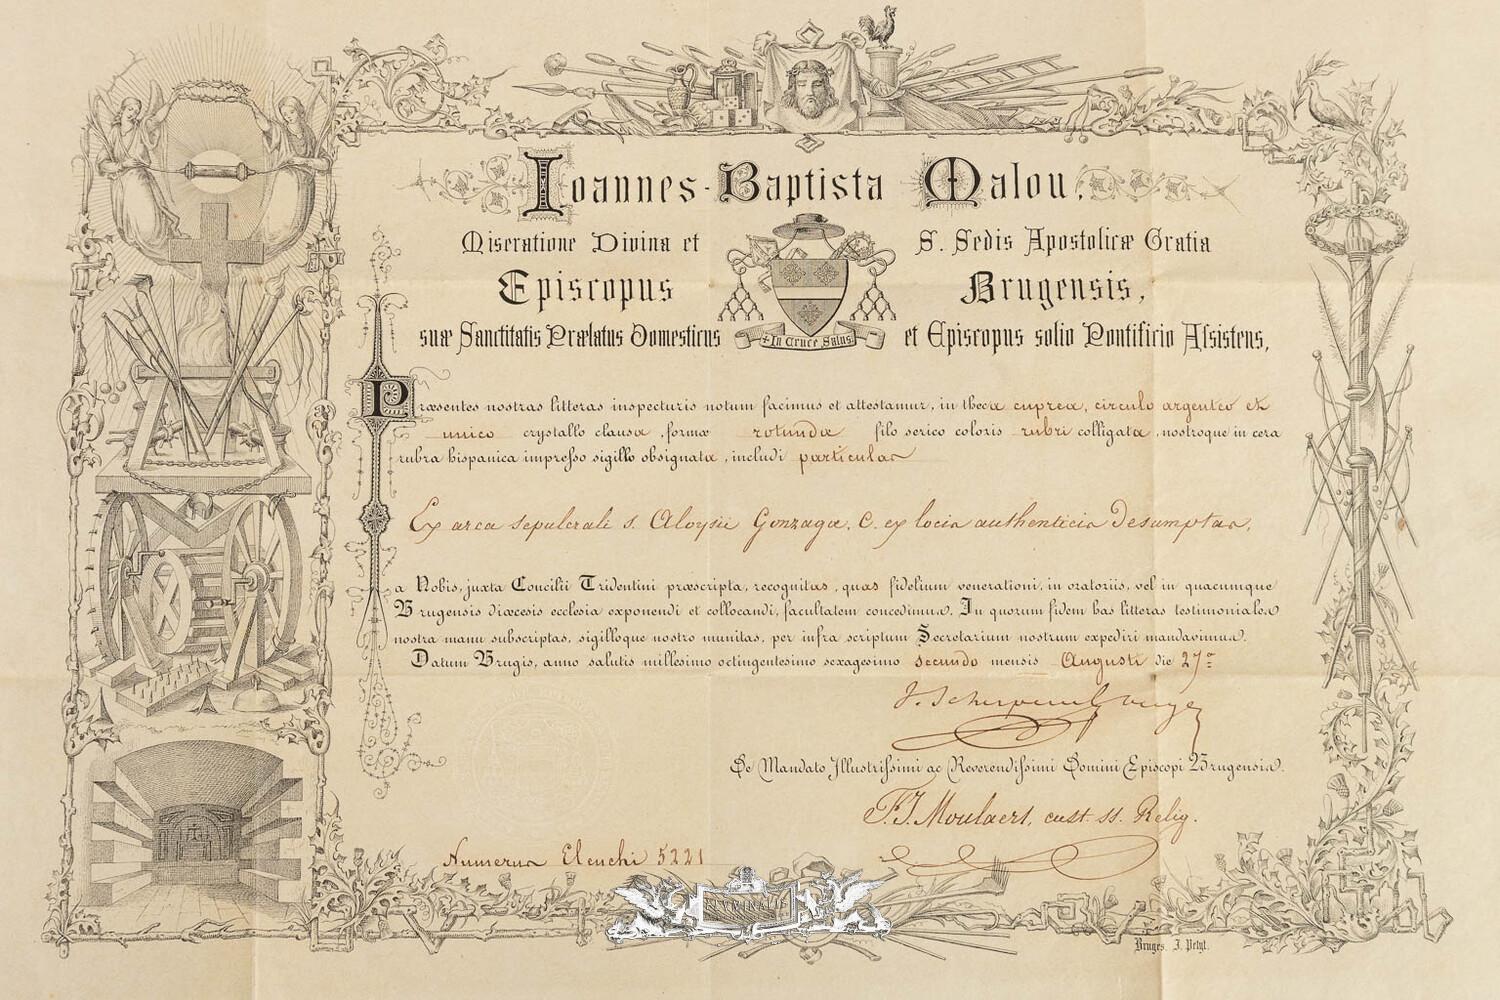 Ioannes-Baptista Malou,
Miseratione Divina et S. Sedis Apostolicæ Gratia
Episcopus Brugensis,
suæ Sanctitatis Prælatus Domesticus et Episcopus solio Pontificio Assistens,
+ In Cruce Salus
Præsentes nostras litteras inspecturis notum facimus et attestamur, in theca cuprea, circulo argenteo et
unico crystallo clausa, formæ rotundæ filo serico coloris rubri colligata, nostroque in cera
rubra hispanica impresso sigillo obsignata, includi particulas
Ex arca sepulcrali s. Aloysii Gonzagæ, C. ex locis authenticis desumptas,
a Nobis, juxta Concilii Tridentini præscripta, recognitas, quas fidelium venerationi, in oratoriis, vel in quacumque
Brugensis diœcesis ecclesia exponendi et collocandi, facultatem concedimus. In quorum fidem has litteras testimoniales
nostra manu subscriptas, sigilloque nostro munitas, per infra scriptum Secretarium nostrum expediri mandavimus.
Datum Brugis, anno salutis millesimo octingentesimo sexagesimo secundo mensis Augusti die 27ª
De Mandato Illustrissimi ac Reverendissimi Domini Episcopi Brugensis.
F. J. Moulaert, cust. ss. Relig.
Numerus Elenchi 5221
Bruges. J. Petyt.